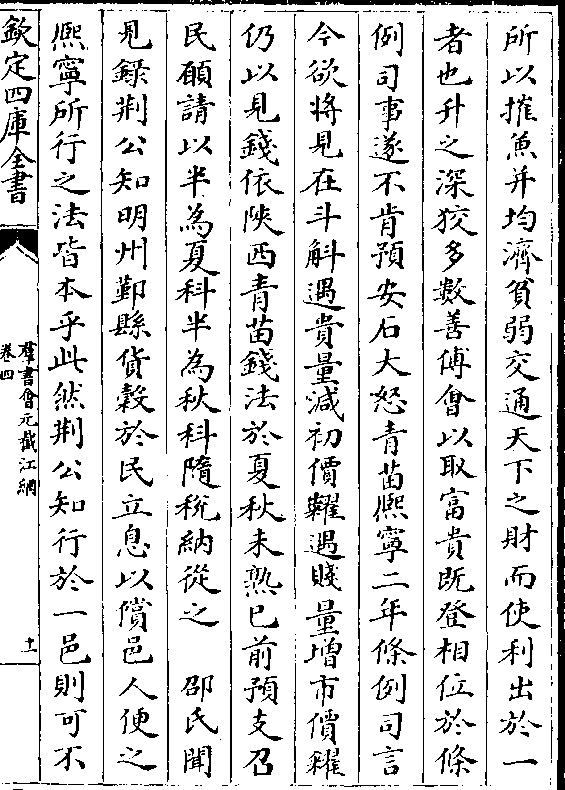 所以搉魚并均濟貧弱交通天下之財而使利出於一
者也升之深狡多數善傅會以取富貴既登相位於條
例司事遂不肯預安石大怒青苗熈寧二年條例司言
今欲將見在斗斛遇貴量減初價糶遇賤量增市價糴
仍以見錢依陜西青苗錢法於夏秋未熟已前預支召
民願請以半為夏科半為秋科隨稅納從之　邵氏聞
見錄荆公知明州鄞縣貨穀於民立息以償邑人便之
熈寧所行之法皆本乎此然荆公知行於一邑則可不
欽定四庫全書
羣書會元截江網
卷四
十一